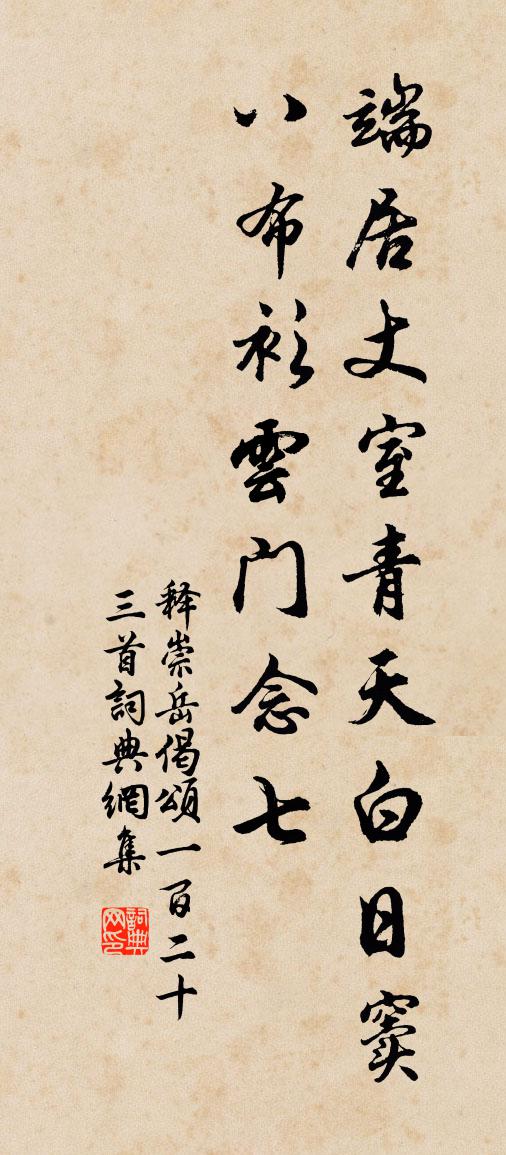 端居丈室青天白日窦
八布衫雲門念七
释崇岳偈頌一百二十
三首詞典網集
詞典网印